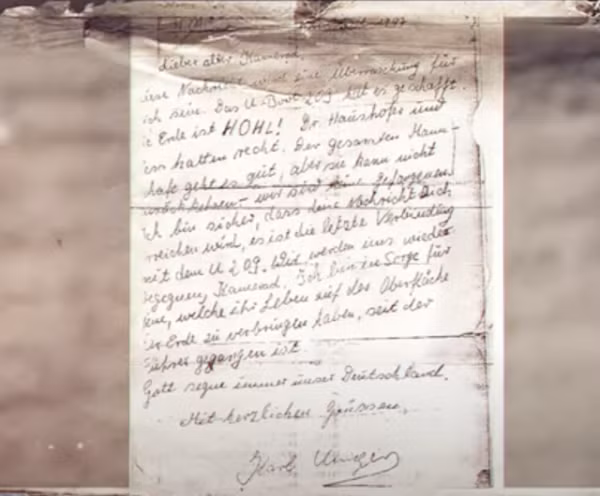 lieber alter Kamerad,
Nachricht wird eine Überraschung für
ich sein. Das U-Boot 209 hat es geschafft.
e Erde ist HOHL! Dr. Haushofer und
ess hatten recht. Der gesamten Mann-
haft geht es gut, aber sie kann nicht
wir sind keine Gefangenen.
ich bin sicher, dass diese Nachricht Dich
rreichen wird, es ist die letzte Verbindung
mit dem U 209. Wir werden uns wieder
begegnen, Kamerad. Ich bin in Sorge für
ene, welche ihr Leben auf der Oberfläche
er Erde zu verbringen haben, seit der
Führer gegangen ist.
Gott segne immer unser Deutschland.
Mit herzlichen Grüssen,
Karl Unger